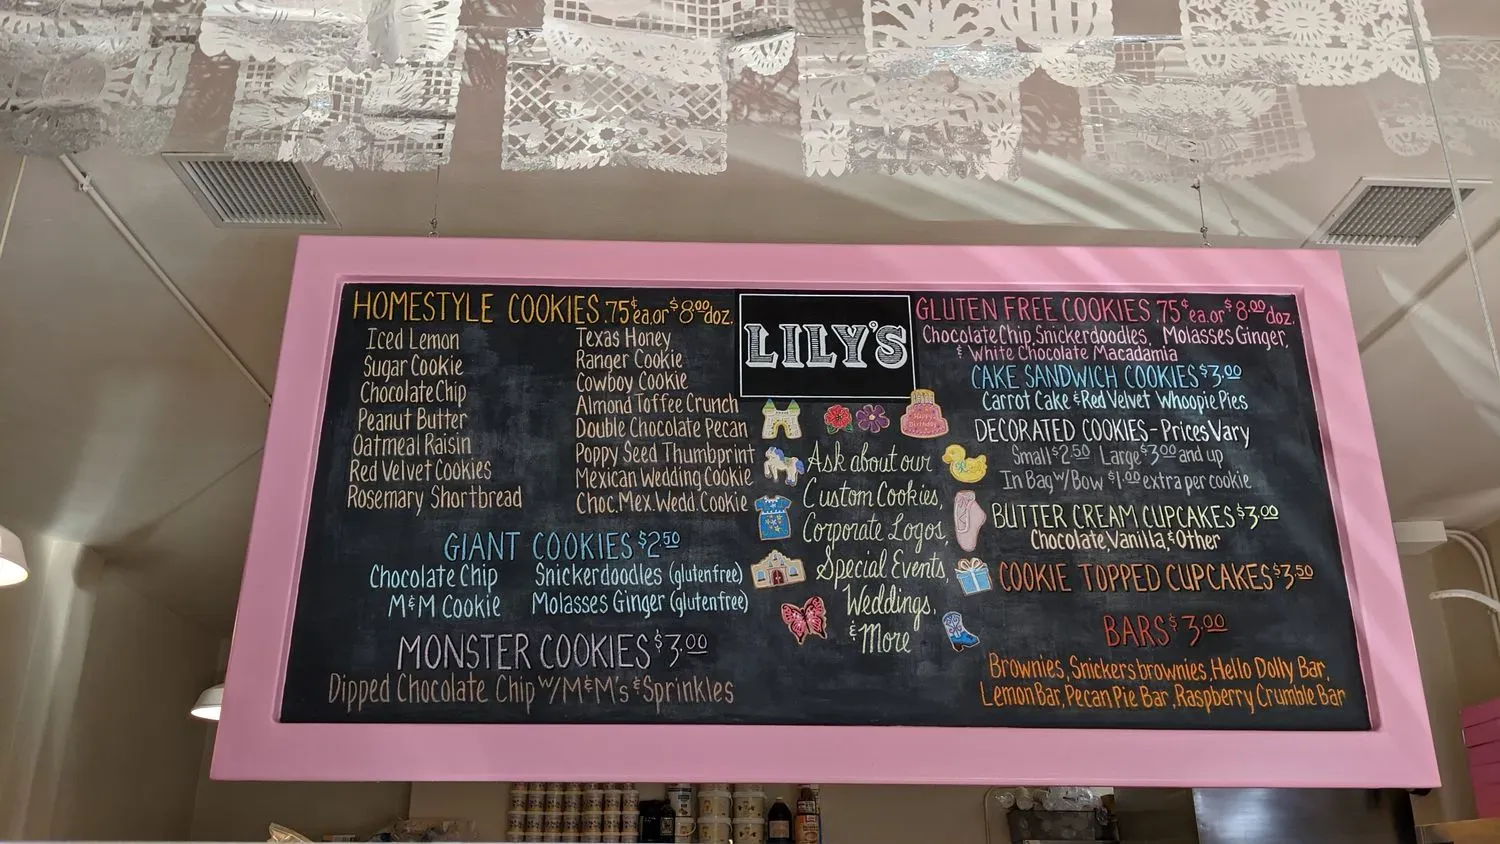 HOMESTYLE COOKIES 75¢ ea. or $8.00 doz.
Iced Lemon
Sugar Cookie
Chocolate Chip
Peanut Butter
Oatmeal Raisin
Red Velvet Cookies
Rosemary Shortbread
Texas Honey
Ranger Cookie
Cowboy Cookie
Almond Toffee Crunch
Double Chocolate Pecan
Poppy Seed Thumbprint
Mexican Wedding Cookie
Choc. Mex. Wedd. Cookie
GIANT COOKIES $2.50
Chocolate Chip
M&M Cookie
Snickerdoodles (gluten free)
Molasses Ginger (gluten free)
MONSTER COOKIES $3.00
Dipped Chocolate Chip w/M&M's & Sprinkles
LILY'S
Happy
Birthday
Ask about our
Custom Cookies,
Corporate Logos,
Special Events,
Weddings,
& More
GLUTEN FREE COOKIES 75¢ ea. or $8.00 doz.
Chocolate Chip, Snickerdoodles, Molasses Ginger,
& White Chocolate Macadamia
CAKE SANDWICH COOKIES $3.00
Carrot Cake & Red Velvet Whoopie Pies
DECORATED COOKIES - Prices Vary
Small $2.50 Large $3.00 and up
In Bag w/Bow $1.00 extra per cookie
BUTTER CREAM CUPCAKES $3.00
Chocolate, Vanilla, & Other
COOKIE TOPPED CUPCAKES $3.50
BARS $3.00
Brownies, Snickers brownies, Hello Dolly Bar,
Lemon Bar, Pecan Pie Bar, Raspberry Crumble Bar